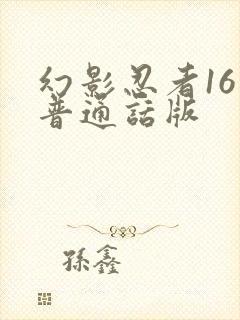 幻影忍者16
普通話版
孫鑫